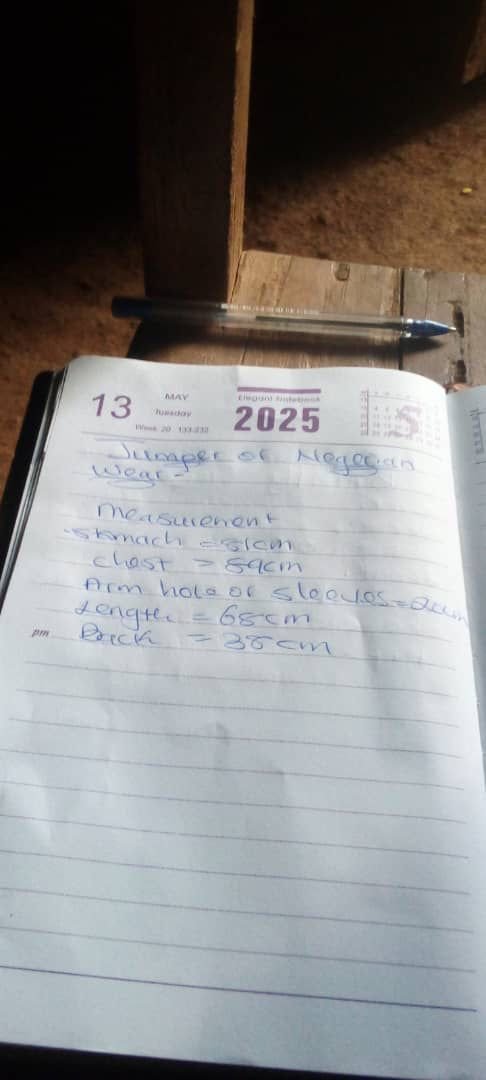 13
MAY
Tuesday
Week 20 133-232
Elegant Notebook
2025
Jumper of Negerian
Wear
measurement
stomach = 81cm
chest = 89cm
Arm hole or sleeves =
Length = 68cm
pm
Back = 38cm